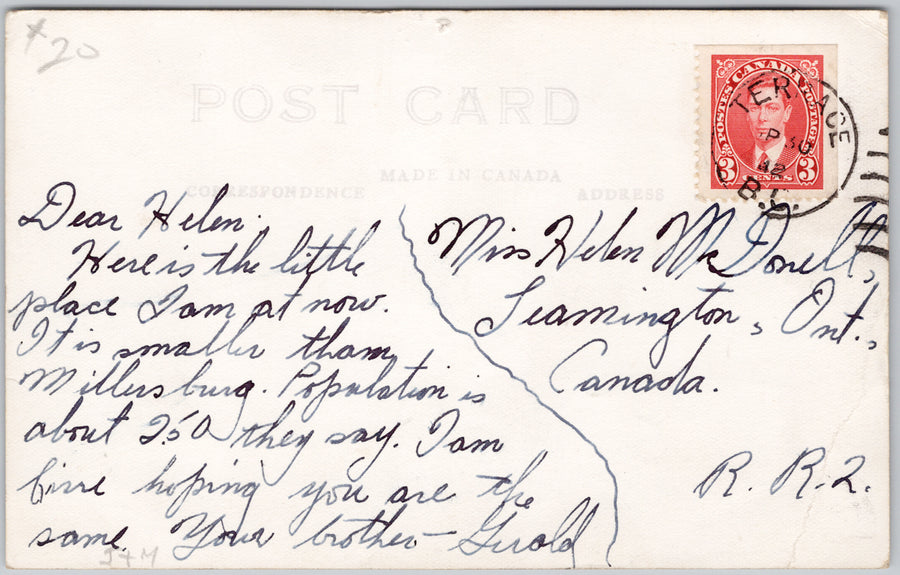 x 20
POST CARD
MADE IN CANADA
CORRESPONDENCE
ADDRESS
POSTES CANADA POSTAGE
3 CENTS 3
TERRACE
SP 30
42
B.C.
Dear Helen.
Here is the little
place I am at now.
It is smaller than
Millersburg. Population is
about 250 they say. I am
fine hoping you are the
same. Your brother — Gerold
Miss Helen McDonell,
Leamington, Ont.,
Canada.
R. R. 2.